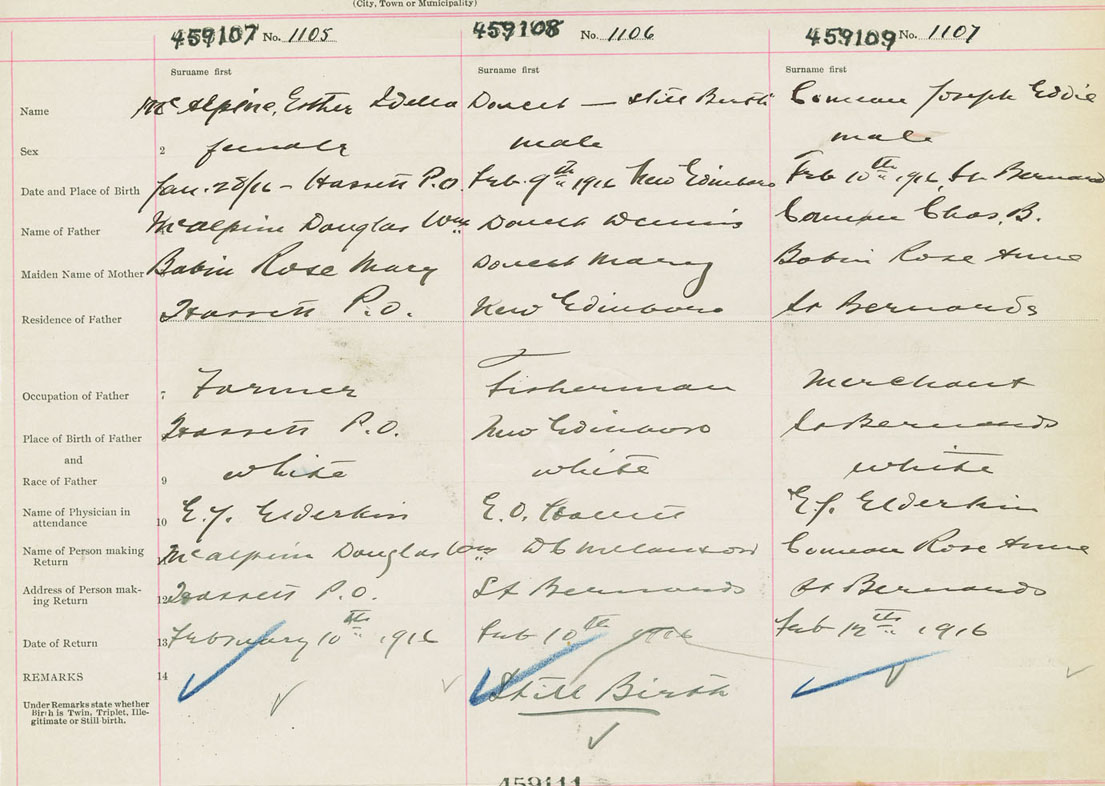 (City, Town or Municipality)
459107 No. 1105 459108 No. 1106 459109 No. 1107
Surname first Surname first Surname first
Name McAlpine, Esther Idella Doucet — Still Birth Comeau Joseph Eddie
Sex 2 female male male
Date and Place of Birth Jan. 28/16 - Hassett P.O. Feb. 9th 1916 New Edinboro Feb 10th 1916, St Bernard
Name of Father McAlpine Douglas Wm Doucet Dennis Comeau Chas. B.
Maiden Name of Mother Babin Rose Mary Doucet Mary Babin Rose Anne
Residence of Father Hassett P.O. New Edinboro St Bernards
Occupation of Father 7 Farmer Fisherman Merchant
Place of Birth of Father Hassett P.O. New Edinboro St Bernards
and
Race of Father 9 white white white
Name of Physician in
attendance 10 E.J. Elderkin E.O. E.J. Elderkin
Name of Person making
Return McAlpine Douglas Wm Melanson Comeau Rose Anne
Address of Person mak-
ing Return 12 Hassett P.O. St Bernards St Bernards
Date of Return 13 February 10th 1916 Feb 10th 1916 Feb 12th 1916
REMARKS 14 Still Birth
Under Remarks state whether
Birth is Twin, Triplet, Ille-
gitimate or Still birth.
459111